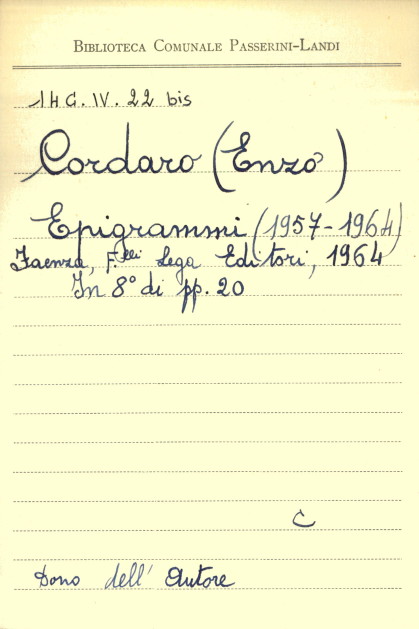 BIBLIOTECA COMUNALE PASSERINI-LANDI
1HG.IV.22 bis
Cordaro (Enzo)
Epigrammi (1957-1964)
Faenza, F.lli Lega Editori, 1964
In 8° di pp. 20
C
Dono dell'Autore